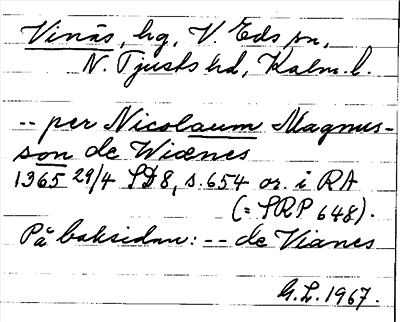 Vinäs, hg, V. Eds sn,
N. Tjusts hd, Kalm. l.
-- per Nicolaum Magnus-
son de Wiænes
1365 29/4 SD8, s. 654 or. i RA
(= SRP 648).
På baksidan: -- de Vianes
G.L. 1967.